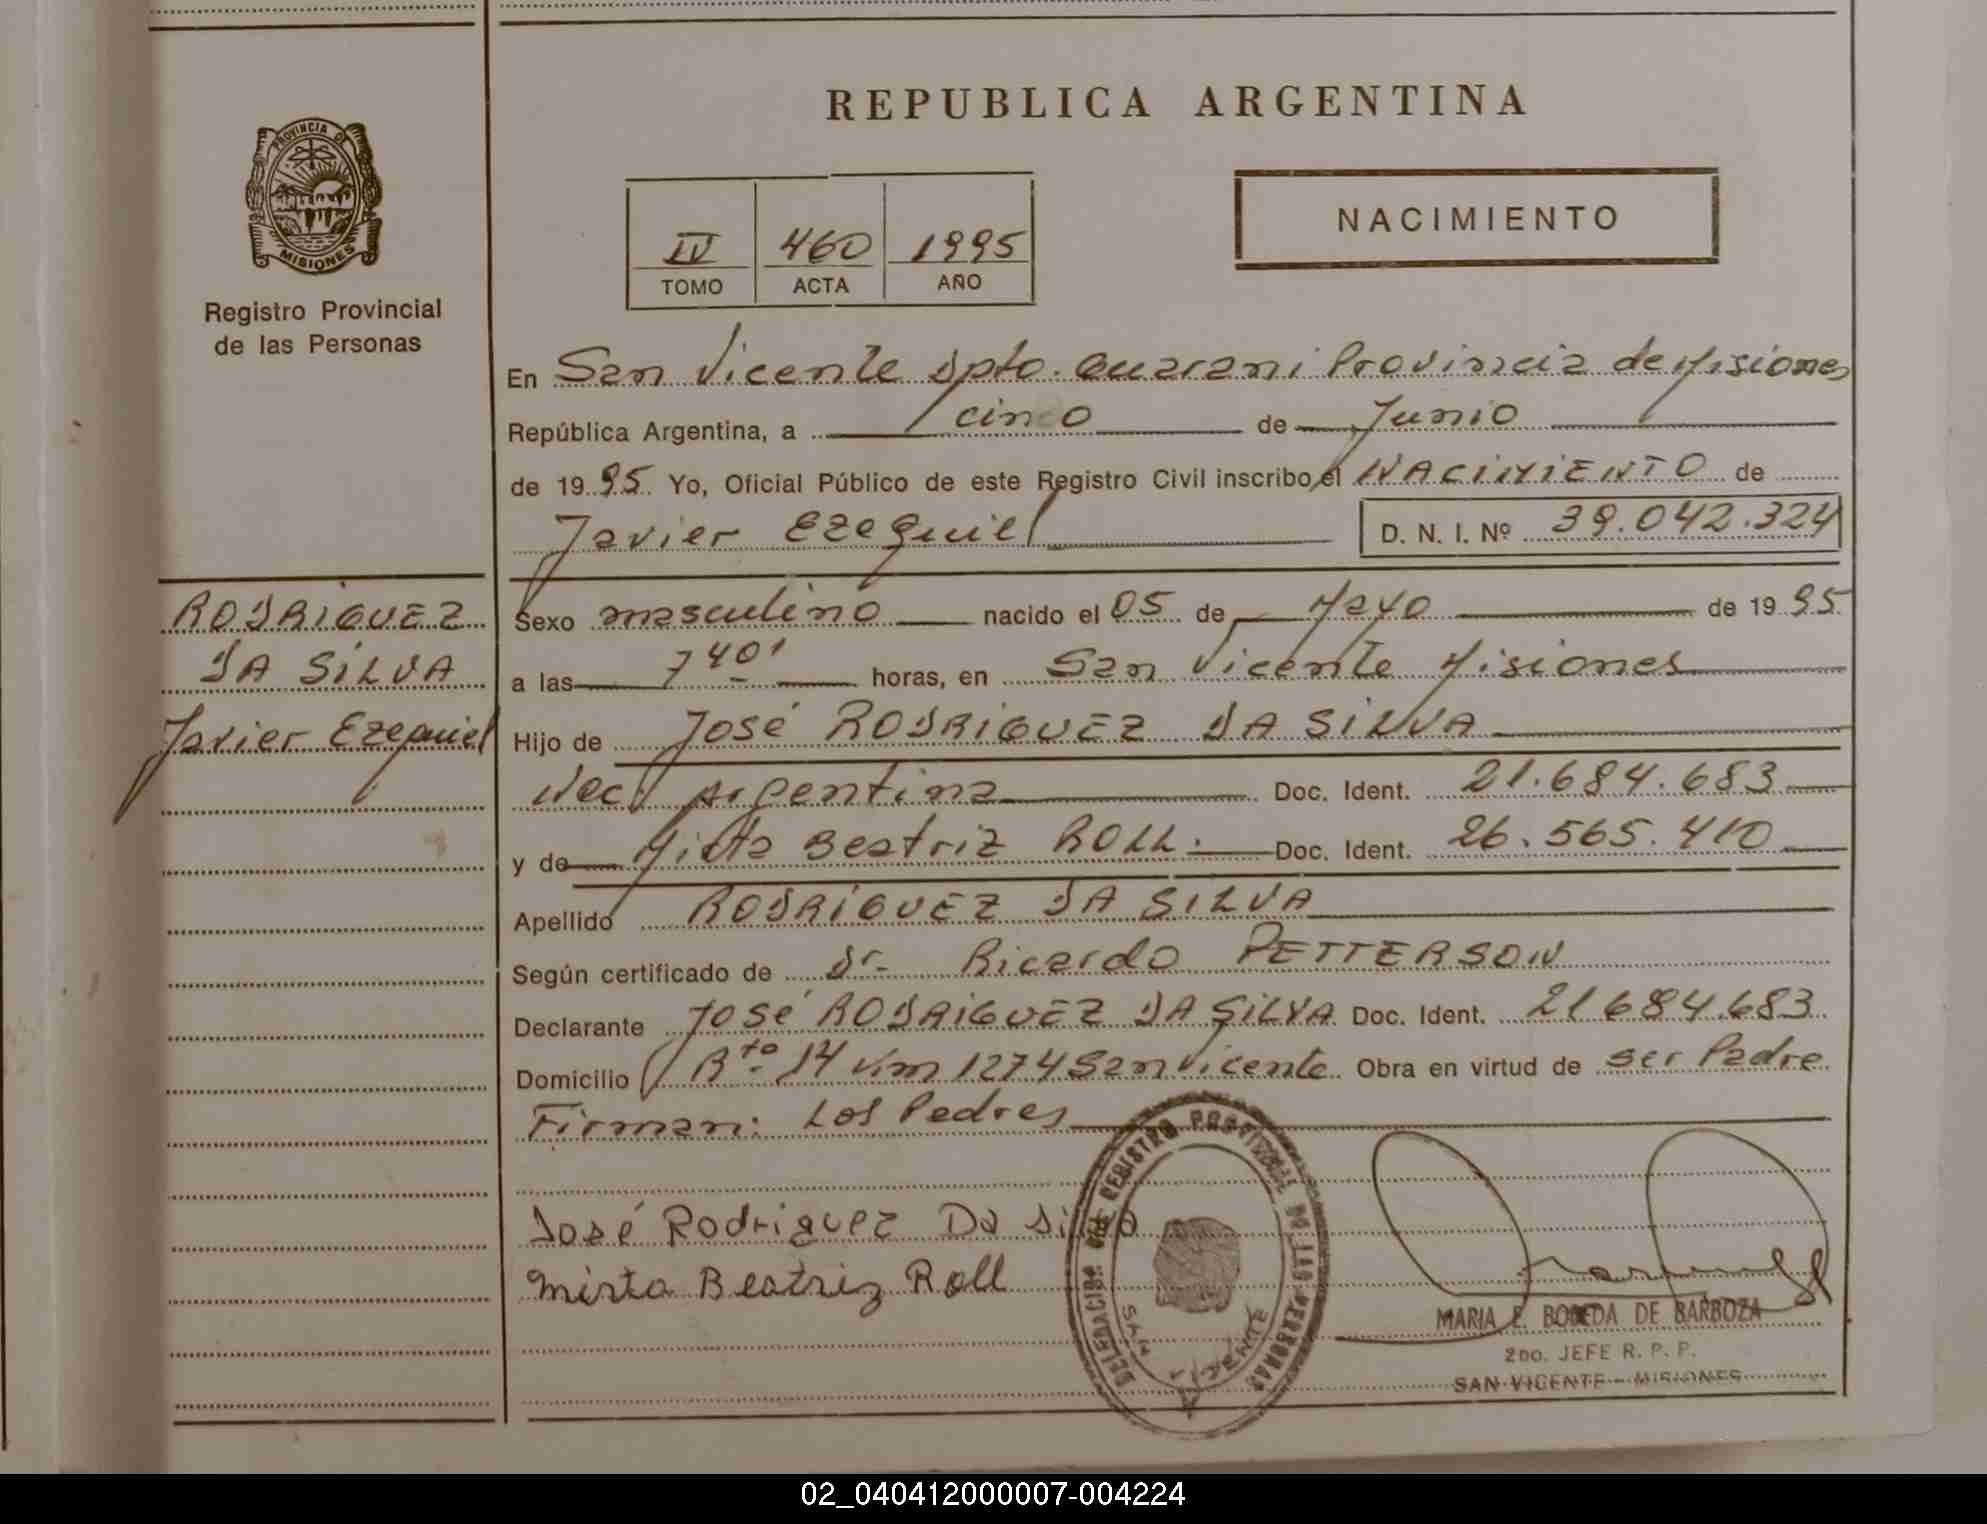 REPUBLICA ARGENTINA
PROVINCIA DE
MISIONES
Registro Provincial
de las Personas
IV 460 1995
TOMO ACTA AÑO
NACIMIENTO
En San Vicente Dpto. Guarani Provincia de Misiones
República Argentina, a cinco de Junio
de 1995 Yo, Oficial Público de este Registro Civil inscribo el NACIMIENTO de
Javier Ezequiel D. N. I. Nº 39.042.324
RODRIGUEZ
DA SILVA
Javier Ezequiel
Sexo masculino nacido el 05 de Mayo de 1995
a las 7 40' horas, en San Vicente Misiones
Hijo de José RODRIGUEZ DA SILVA
Nac. Argentina Doc. Ident. 21.684.683
y de Mirta Beatriz ROLL. Doc. Ident. 26.565.410
Apellido RODRIGUEZ DA SILVA
Según certificado de Dr. Ricardo PETTERSON
Declarante José RODRIGUEZ DA SILVA Doc. Ident. 21684.683
Domicilio Rta. 14 Km 1274 San Vicente Obra en virtud de ser Padre
Firman: Los Padres
José Rodriguez Da Silva
Mirta Beatriz Roll
DELEGACION DEL REGISTRO PROVINCIAL DE LAS PERSONAS
SAN VICENTE
MARIA E. BOBEDA DE BARBOZA
2DO. JEFE R. P. P.
SAN VICENTE - MISIONES
02_040412000007-004224